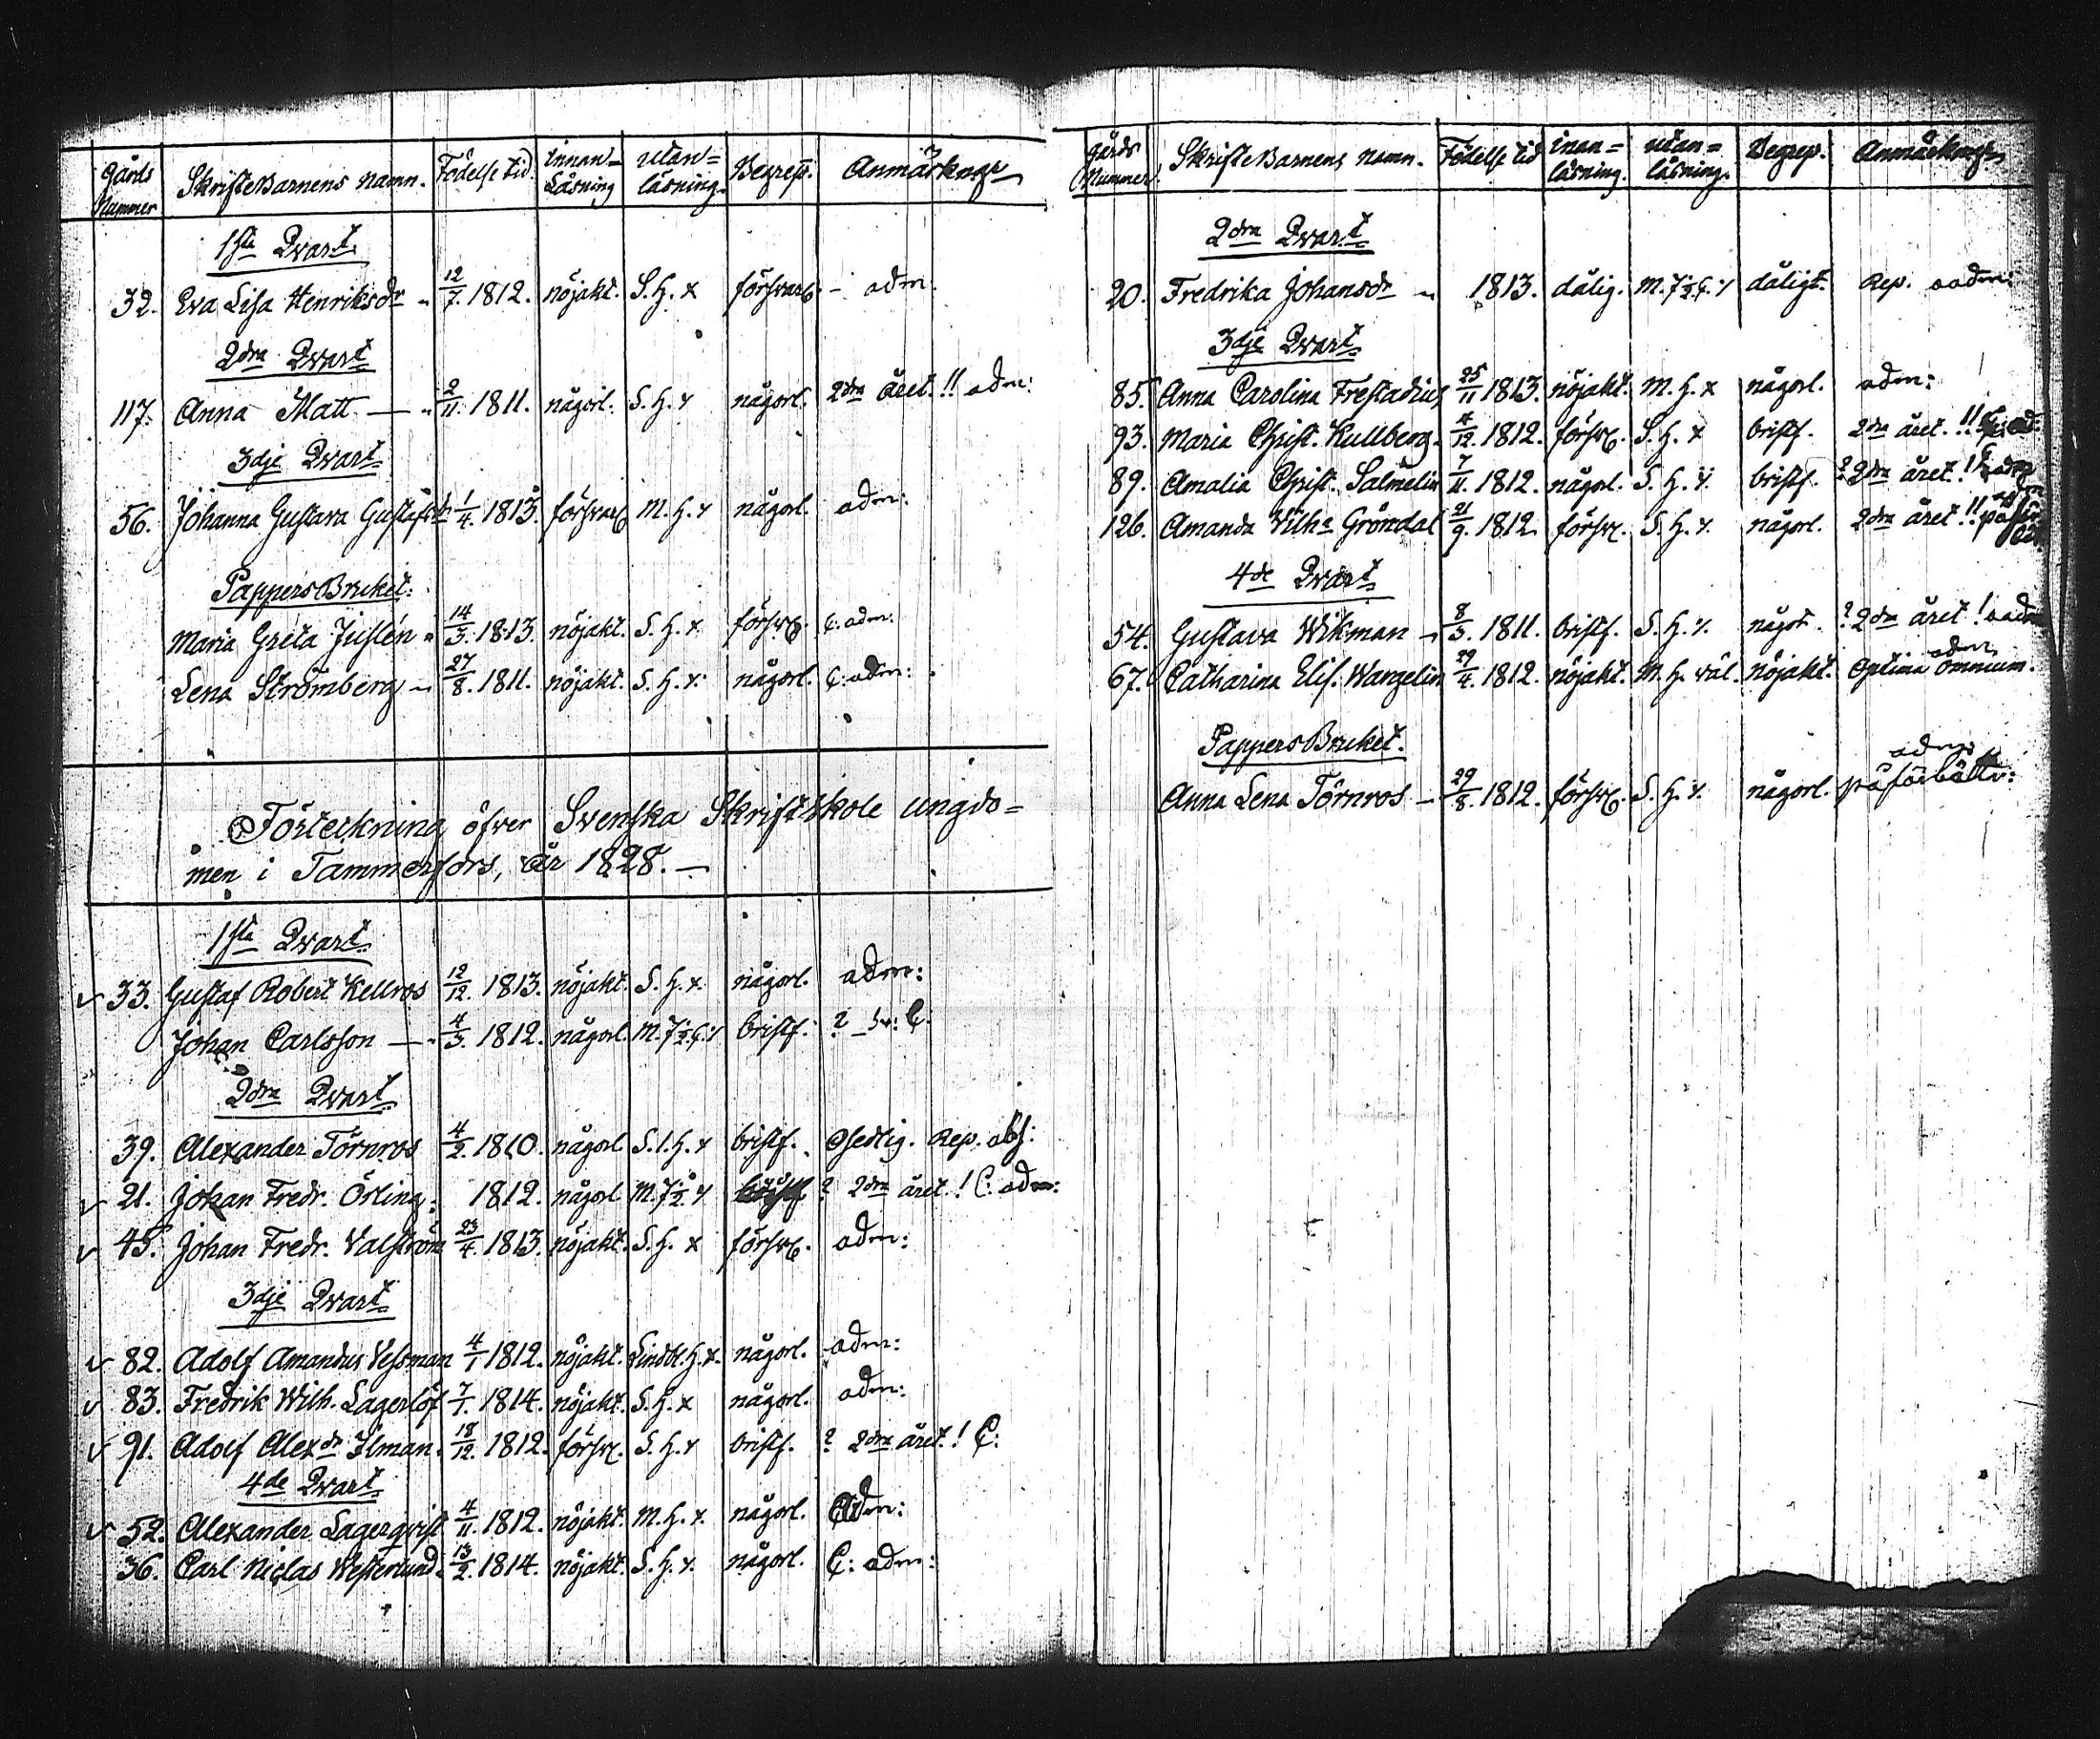 Gårds Nummer | SkrifteBarnens namn. | Födelse tid. | innan=Läsning | utan=läsning. | Begrep. | Anmärkningr
1sta Qvart.
32. Eva Lisa Henriksdr " 12/7. 1812. nöjakt. S. H. x försvarl. - adm.
2dra Qvart
117. Anna Matt — " 2/11. 1811. någorl. S. H. x någorl. 2dra året. !! adm:
3dje Qvart
56. Johanna Gustava Gustafsdr 1/4. 1813. försvarl M. H. x någorl. adm:
PappersBruket.
Maria Greta Juslén " 14/3. 1813. nöjakt. S. H. x. försvl. C. adm:
Lena Strömberg " 27/8. 1811. nöjakt. S. H. x. någorl. C: adm:
Förteckning öfver Svenska Skriftskole ungdo=
men i Tammerfors, år 1828. —
1sta Qvart.
33. Gustaf Robert Kellros 12/12. 1813. nöjakt. S. H. x. någorl. adm:
Johan Carlsson — " 4/3. 1812. någorl. M. 7 1/2. C. x bristf. ?
2dra Qvart
39. Alexander Törnros 4/2. 1810. någorl S. l. H. x bristf. Osedlig. Rep. abs:
21. Johan Fredr. Örling. 1812. någorl M. 7 1/2 x ? 2dra året. ! C: adm:
45. Johan Fredr. Valström 23/4. 1813. nöjakt. S. H. x försvl. adm:
3dje Qvart
82. Adolf Amandus Vessman 4/1 1812. nöjakt. Lindbl. H. x. någorl. adm:
83. Fredrik Wilh. Lagerlöf 7/1. 1814. nöjakt. S. H. x någorl. adm:
91. Adolf Alexdr Ilman. 18/12. 1812. försvl. S. H. x bristf. ? 2dra året. ! C:
4de Qvart
52. Alexander Lagerqvist 4/11. 1812. nöjakt. M. H. x. någorl. adm:
36. Carl Niclas Westerlund. 13/2. 1814. nöjakt. S. H. x. någorl. C: adm:
Gårds Nummer. | SkrifteBarnens namn. | Födelse tid | inan=läsning. | utan=läsning. | Begrep. | Anmärkningr
2dra Qvart
20. Fredrika Johansdr " 1813. dålig. M. 7 1/2. C. x dåligt. Rep. oadm:
3dje Qvart
85. Anna Carolina Frestadius 25/11 1813. nöjakt. M. H. x någorl. adm:
93. Maria Christ. Kullberg. 4/12. 1812. försvl. S. H. x bristf. 2dra året. !!
89. Amalia Christ. Salmelin 7/11. 1812. någorl. S. H. x. bristf. ? 2dra året. !
126. Amanda Vilha Gröndal 21/9. 1812. försvl. S. H. x. någorl. 2dra året !!
4de Qvart
54. Gustava Wikman " 8/3. 1811. bristf. S. H. x. någorl. ? 2dra året ! oadm
67. Catharina Elis. Wangelin 29/4. 1812. nöjakt. M. H. väl. nöjakt. Optima omnium. adm
PappersBruket.
Anna Lena Törnros — 29/8. 1812. försvl. S. H. x. någorl. adm: på förbättr: